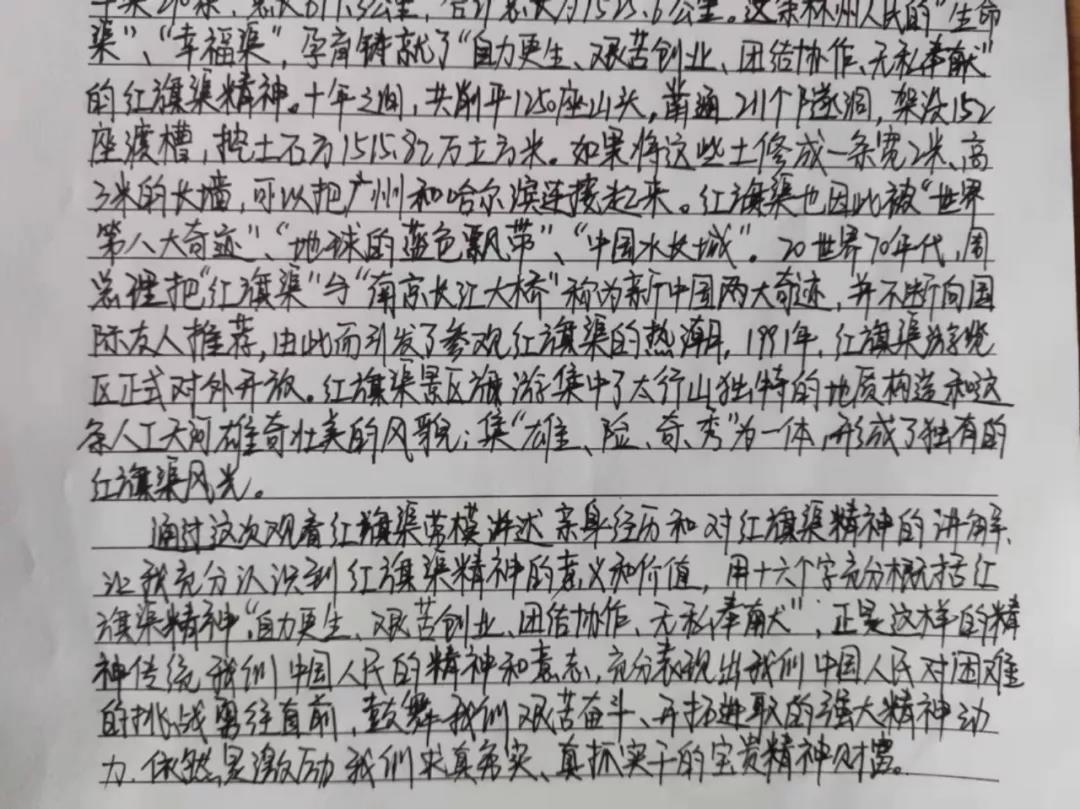 干渠290条,总长811.3公里,合计总长为1525.6公里。这条林州人民的“生命
渠”、“幸福渠”,孕育铸就了“自力更生、艰苦创业、团结协作、无私奉献”
的红旗渠精神。十年之间,共削平1250座山头,凿通211个隧洞,架设152
座渡槽,挖土石方1515.82万立方米。如果将这些土修成一条宽2米、高
3米的长墙,可以把广州和哈尔滨连接起来。红旗渠也因此被“世界
第八大奇迹”、“地球的蓝色飘带”、“中国水长城”。20世界70年代,周
总理把“红旗渠”与“南京长江大桥”称为新中国两大奇迹,并不断向国
际友人推荐,由此而引发了参观红旗渠的热潮,1991年,红旗渠游览
区正式对外开放。红旗渠景区旅游集中了太行山独特的地质构造和这
条人工天河雄奇壮美的风貌;集“雄、险、奇、秀”为一体,形成了独有的
红旗渠风光。
通过这次观看红旗渠劳模讲述亲身经历和对红旗渠精神的讲解,
让我充分认识到红旗渠精神的意义和价值,用十六个字充分概括红
旗渠精神“自力更生、艰苦创业、团结协作、无私奉献”,正是这样的精
神传统我们中国人民的精神和意志,充分表现出我们中国人民对困难
的挑战勇往直前,鼓舞我们艰苦奋斗、开拓进取的强大精神动
力,依然是激励我们求真务实、真抓实干的宝贵精神财富。